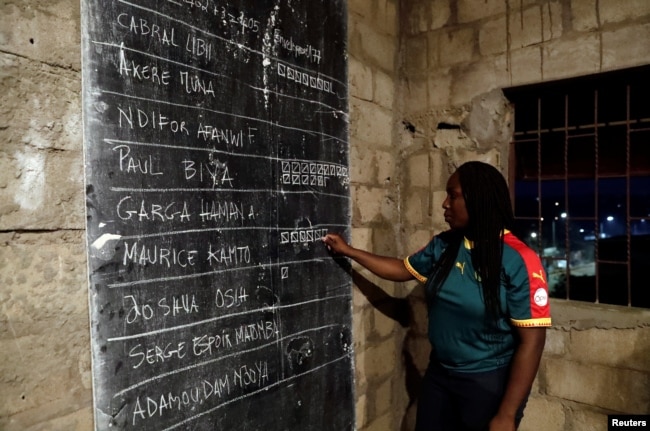 CABRAL LIBII
AKERE MUNA
NDIFOR AFANWI F.
PAUL BIYA
GARGA HAMAN A.
MAURICE KAMTO
JOSHUA OSIH
SERGE ESPOIR MATOMBA
ADAMOU DAM NJOYA
Reuters